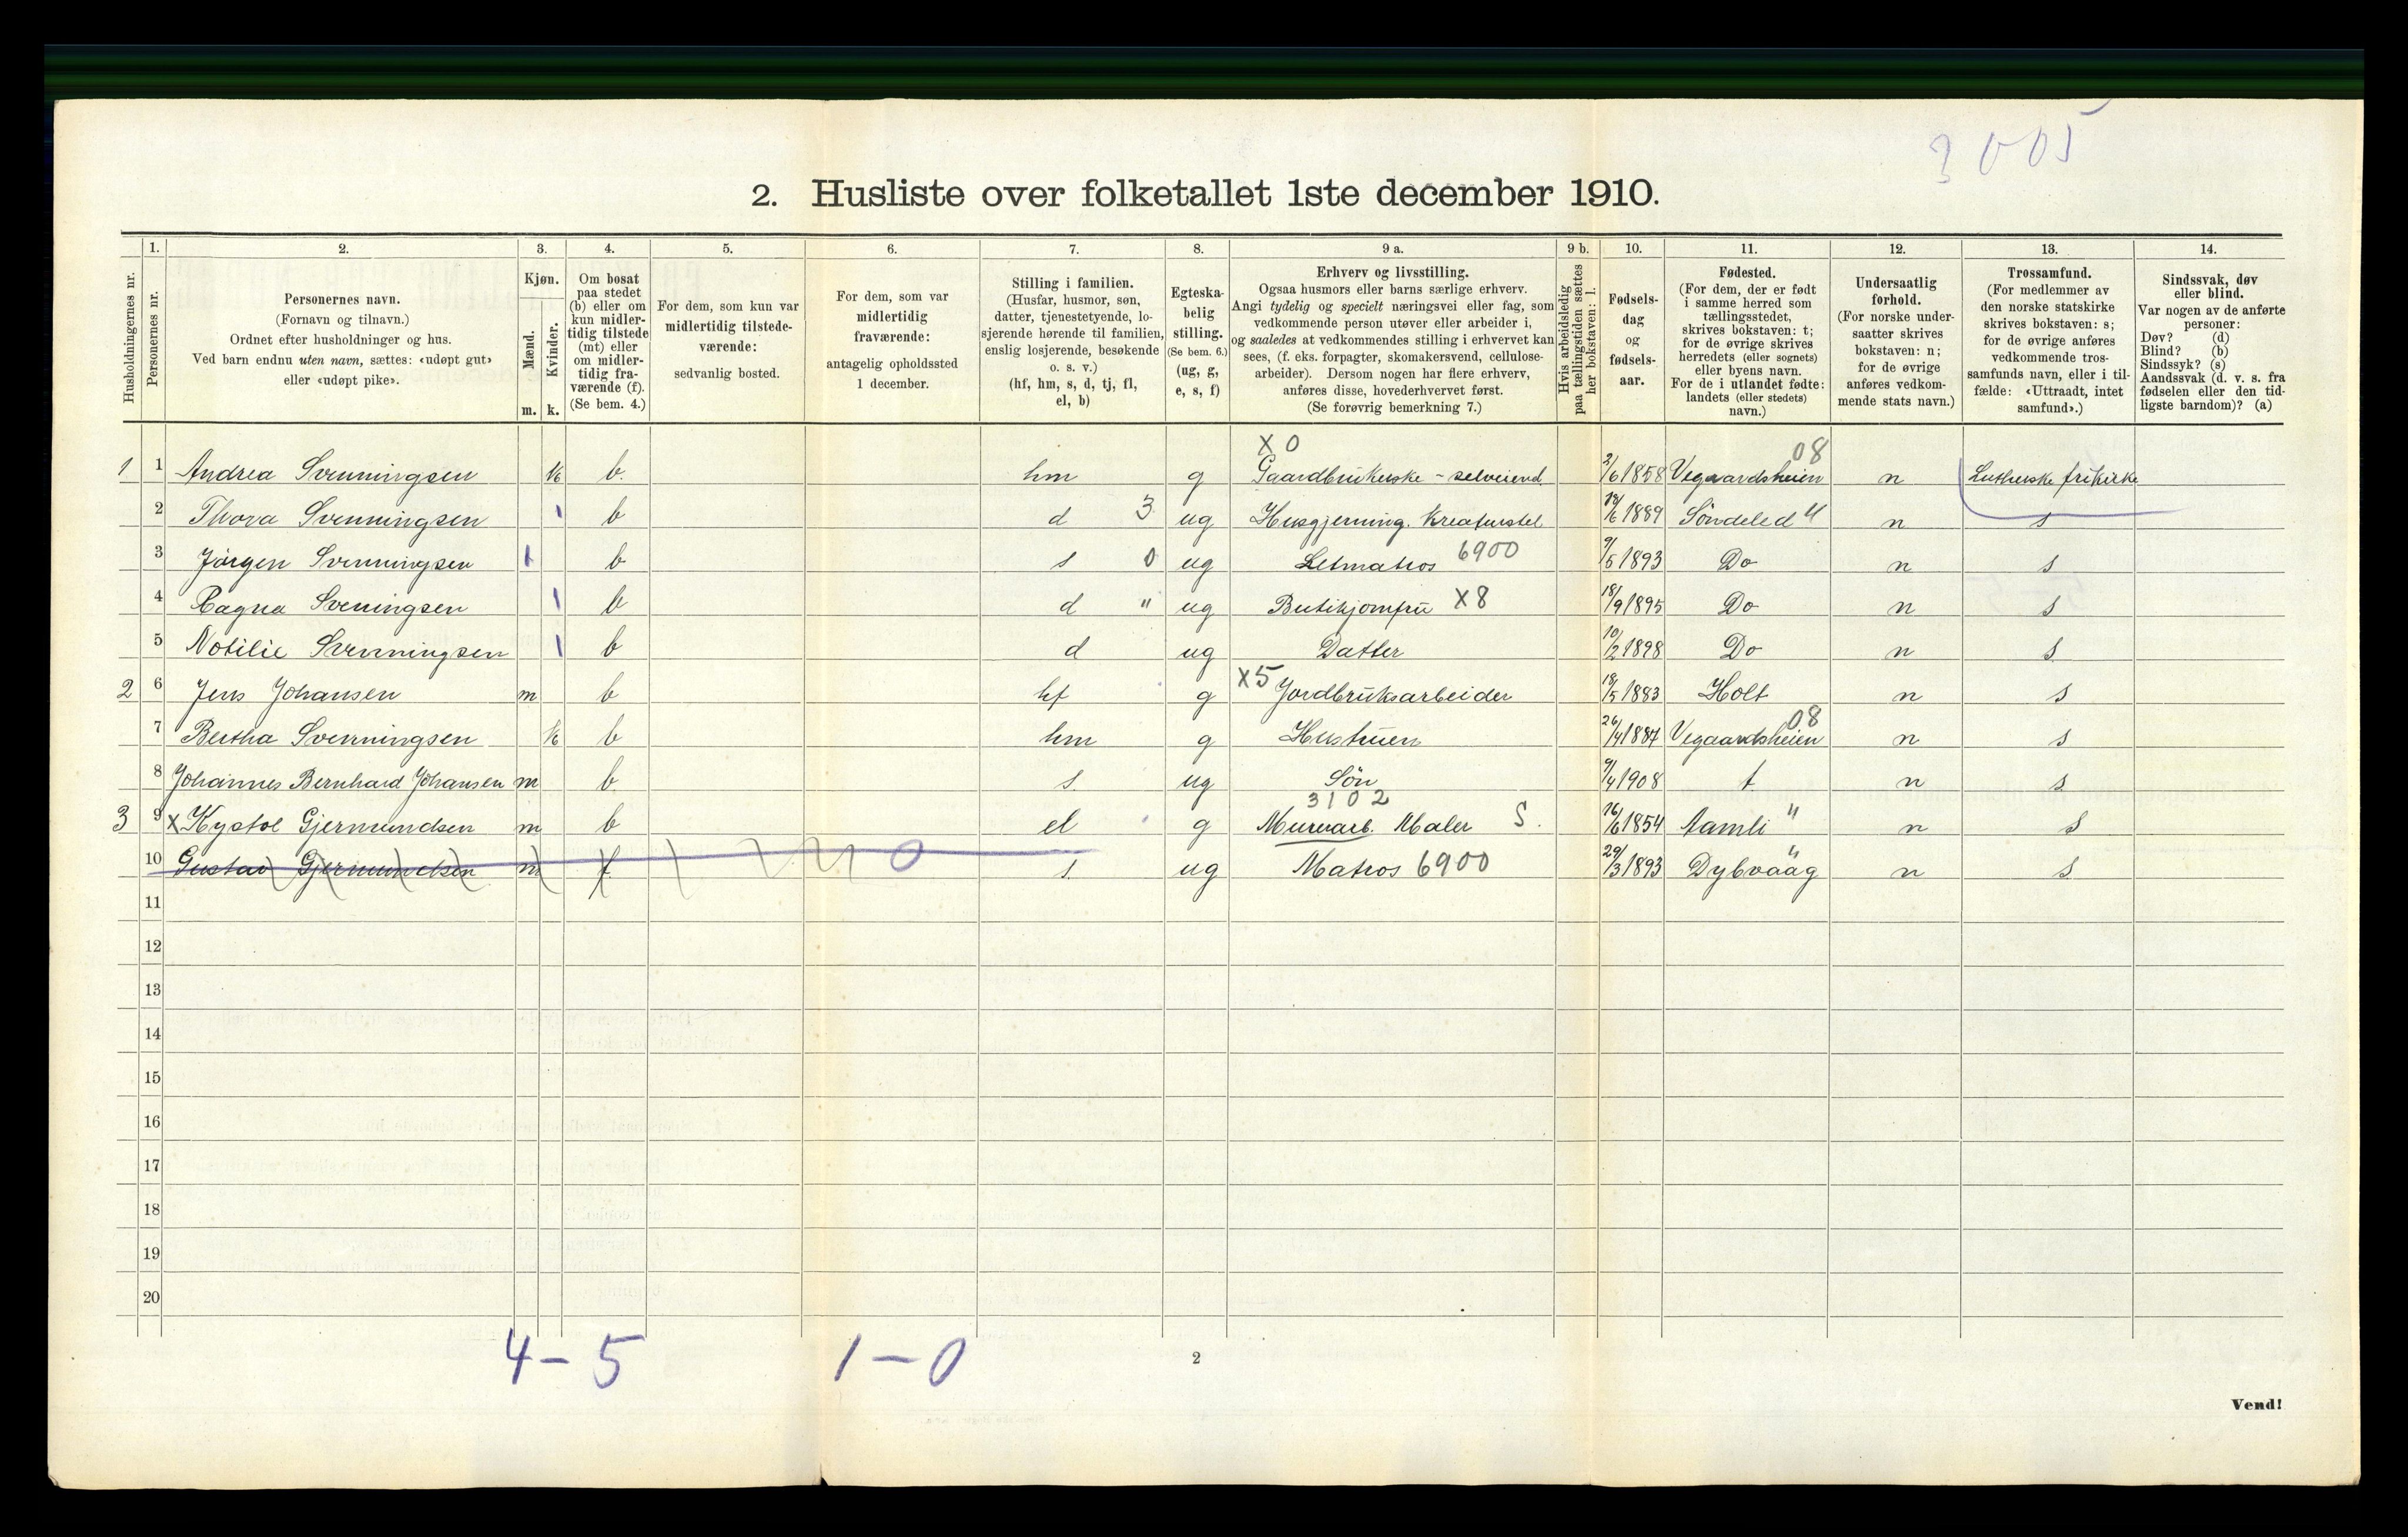 3005
2. Husliste over folketallet 1ste december 1910.
Husholdningernes nr.
1. Personernes nr.
2. Personernes navn. (Fornavn og tilnavn.) Ordnet efter husholdninger og hus. Ved barn endnu uten navn, sættes: «udøpt gut» eller «udøpt pike».
3. Kjøn. Mænd. m. Kvinder. k.
4. Om bosat paa stedet (b) eller om kun midlertidig tilstede (mt) eller om midlertidig fraværende (f). (Se bem. 4.)
5. For dem, som kun var midlertidig tilstedeværende: sedvanlig bosted.
6. For dem, som var midlertidig fraværende: antagelig opholdssted 1 december.
7. Stilling i familien. (Husfar, husmor, søn, datter, tjenestetyende, losjerende hørende til familien, enslig losjerende, besøkende o. s. v.) (hf, hm, s, d, tj, fl, el, b)
8. Egteskabelig stilling. (Se bem. 6.) (ug, g, e, s, f)
9 a. Erhverv og livsstilling. Ogsaa husmors eller barns særlige erhverv. Angi tydelig og specielt næringsvei eller fag, som vedkommende person utøver eller arbeider i, og saaledes at vedkommendes stilling i erhvervet kan sees, (f. eks. forpagter, skomakersvend, cellulosearbeider). Dersom nogen har flere erhverv, anføres disse, hovederhvervet først. (Se forøvrig bemerkning 7.)
9 b. Hvis arbeidsledig paa tællingstiden sættes her bokstaven: l.
10. Fødselsdag og fødselsaar.
11. Fødested. (For dem, der er født i samme herred som tællingsstedet, skrives bokstaven: t; for de øvrige skrives herredets (eller sognets) eller byens navn. For de i utlandet fødte: landets (eller stedets) navn.)
12. Undersaatlig forhold. (For norske undersaatter skrives bokstaven: n; for de øvrige anføres vedkommende stats navn.)
13. Trossamfund. (For medlemmer av den norske statskirke skrives bokstaven: s; for de øvrige anføres vedkommende trossamfunds navn, eller i tilfælde: «Uttraadt, intet samfund».)
14. Sindssvak, døv eller blind. Var nogen av de anførte personer: Døv? (d) Blind? (b) Sindssyk? (s) Aandssvak (d. v. s. fra fødselen eller den tidligste barndom)? (a)
X 0 08
1 1 Andrea Svenningsen k b. hm g Gaardbrukerske - selveiend. 2/6 1858 Vegaardsheien n Lutherske frikirke
2 Thora Svenningsen 1 b d 3 ug Husgjerning. Kreaturstel 12/6 1889 Söndeled " n s
3 Jörgen Svenningsen 1 b s 0 ug Letmatros 6900 9/5 1893 Do n s
4 Ragna Svenningsen 1 b d " ug Butikjomfru X8 18/9 1895 Do n s
5 Notilie Svenningsen 1 b d ug Datter 10/2 1898 Do n s
2 6 Jens Johansen m b hf g X5 Jordbruksarbeider 18/5 1883 Holt n s
08
7 Bertha Svenningsen k b hm g Hustruen 26/4 1887 Vegaardsheien n s
8 Johannes Bernhard Johansen m b s ug Sön 9/4 1908 t n s
3102
3 9 X Kystol Gjermundsen m b el g Murarb. Maler S. 16/6 1854 Aamli " n s
10 Gustav Gjermundsen m f 0 s ug Matros 6900 29/3 1893 Dybvaag " n s
11
12
13
14
15
16
17
18
19
20
4 - 5 1 - 0
2
Vend!